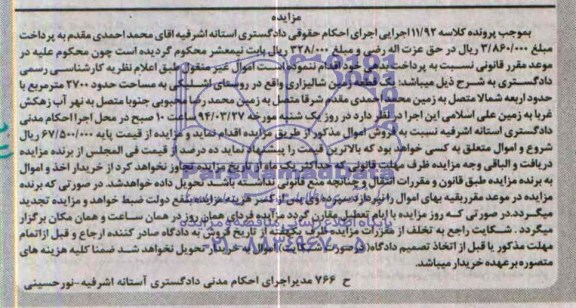 مزایده
بموجب پرونده کلاسه ۱۱/۹۲اجرایی اجرای احکام حقوقی دادگستری استانه اشرفیه اقای محمد احمدی مقدم به پرداخت
مبلغ ۳/۸۶۰/۰۰۰ ریال در حق عزت اله رضی و مبلغ ۳۲۸/۰۰۰ ریال بابت نیمعشر محکوم گردیده است چون محکوم علیه در
موعد مقرر قانونی نسبت به پرداخت بدهی خود اقدام ننموده است اموال غیر منقول طبق اعلام نظریه کارشناسی رسمی
دادگستری به شرح ذیل میباشد: یک قطعه زمین شالیزاری واقع در روستای اشلیکی به مساحت حدود ۲۷۰۰ مترمربع با
حدود اربعه شمالا متصل به زمین محمد احمدی مقدم شرقا متصل به زمین محمد رضا محبوبی جنوبا متصل به نهر آب زهکش
غربا به زمین علی اسلامی این اجرا در نظر دارد در روز یک شنبه مورخه ۹۴/۰۳/۲۷ ساعت ۱۰ صبح در محل اجرا احکام مدنی
دادگستری استانه اشرفیه نسبت به فروش اموال مذکور از طریق مزایده اقدام نماید و مزایده از قیمت پایه ۶۷/۵۰۰/۰۰۰ ریال
شروع و اموال متعلق به کسی خواهد بود که بالاترین قیمت را پیشنهاد نماید ده درصد از قیمت فی المجلس از برنده مزایده
دریافت و الباقی وجه مزایده ظرف مهلت قانونی که حداکثر یک ماه از تاریخ مزایده تجاوز نخواهد کرد از خریدار اخذ و اموال
به برنده مزایده طبق قانون و مقررات انتقال و چنانچه منع قانونی نداشته باشد تحویل داده خواهدشد. در صورتی که برنده
مزایده در موعد مقرر بقیه بهای اموال را نپردازد سپرده وی پس از کسر هزینه مزایده بنفع دولت ضبط خواهد و مزایده تجدید
میگردد.در صورتی که روز مزایده با ایام تعطیل مقارن گردد مزایده فردای همان روز در همان ساعت و همان مکان برگزار
میگردد . شکایت راجع به تخلف از مقررات مزایده ظرف یکهفته از تاریخ فروش به دادگاه صادر کننده ارجاع و قبل ازاتمام
مهلت مذکور یا قبل از اتخاذ تصمیم دادگاه(در صورت شکایت) اموال به خریدار تحویل نخواهد شد ضمنا کلیه هزینه های
متصوره بر عهده خریدار میباشد.
ح ۷۶۶ مدیراجرای احکام مدنی دادگستری آستانه اشرفیه-نورحسینی
ParsNamadData
پایگاه اطلاع رسانی مناقصه و مزایده
۰۲۱-۸۸۳۴۹۶۷۰-۵